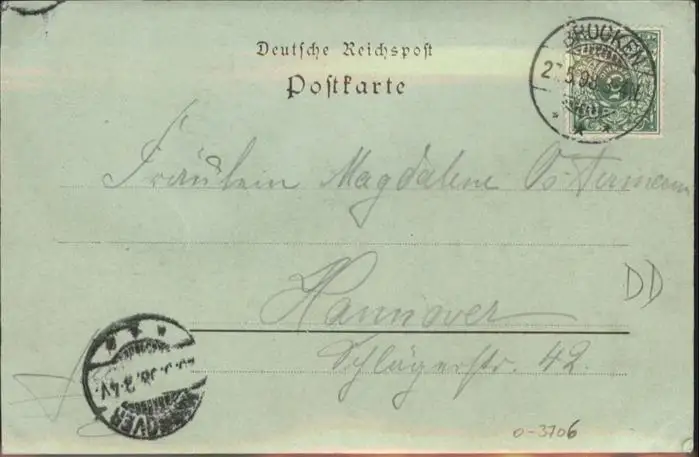 Deutsche Reichspost
Postkarte
BRÜCKEN
Fräulein Magdalene Ostermann
Hannover
Schlägerstr. 42.
DD
HANNOVER
o-3706